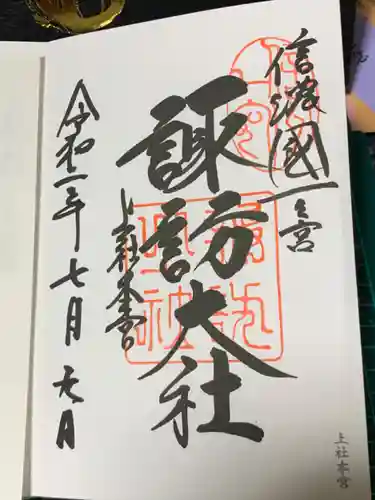 信濃國一之宮
諏訪大社
上社本宮
令和一年七月六日
上社本宮